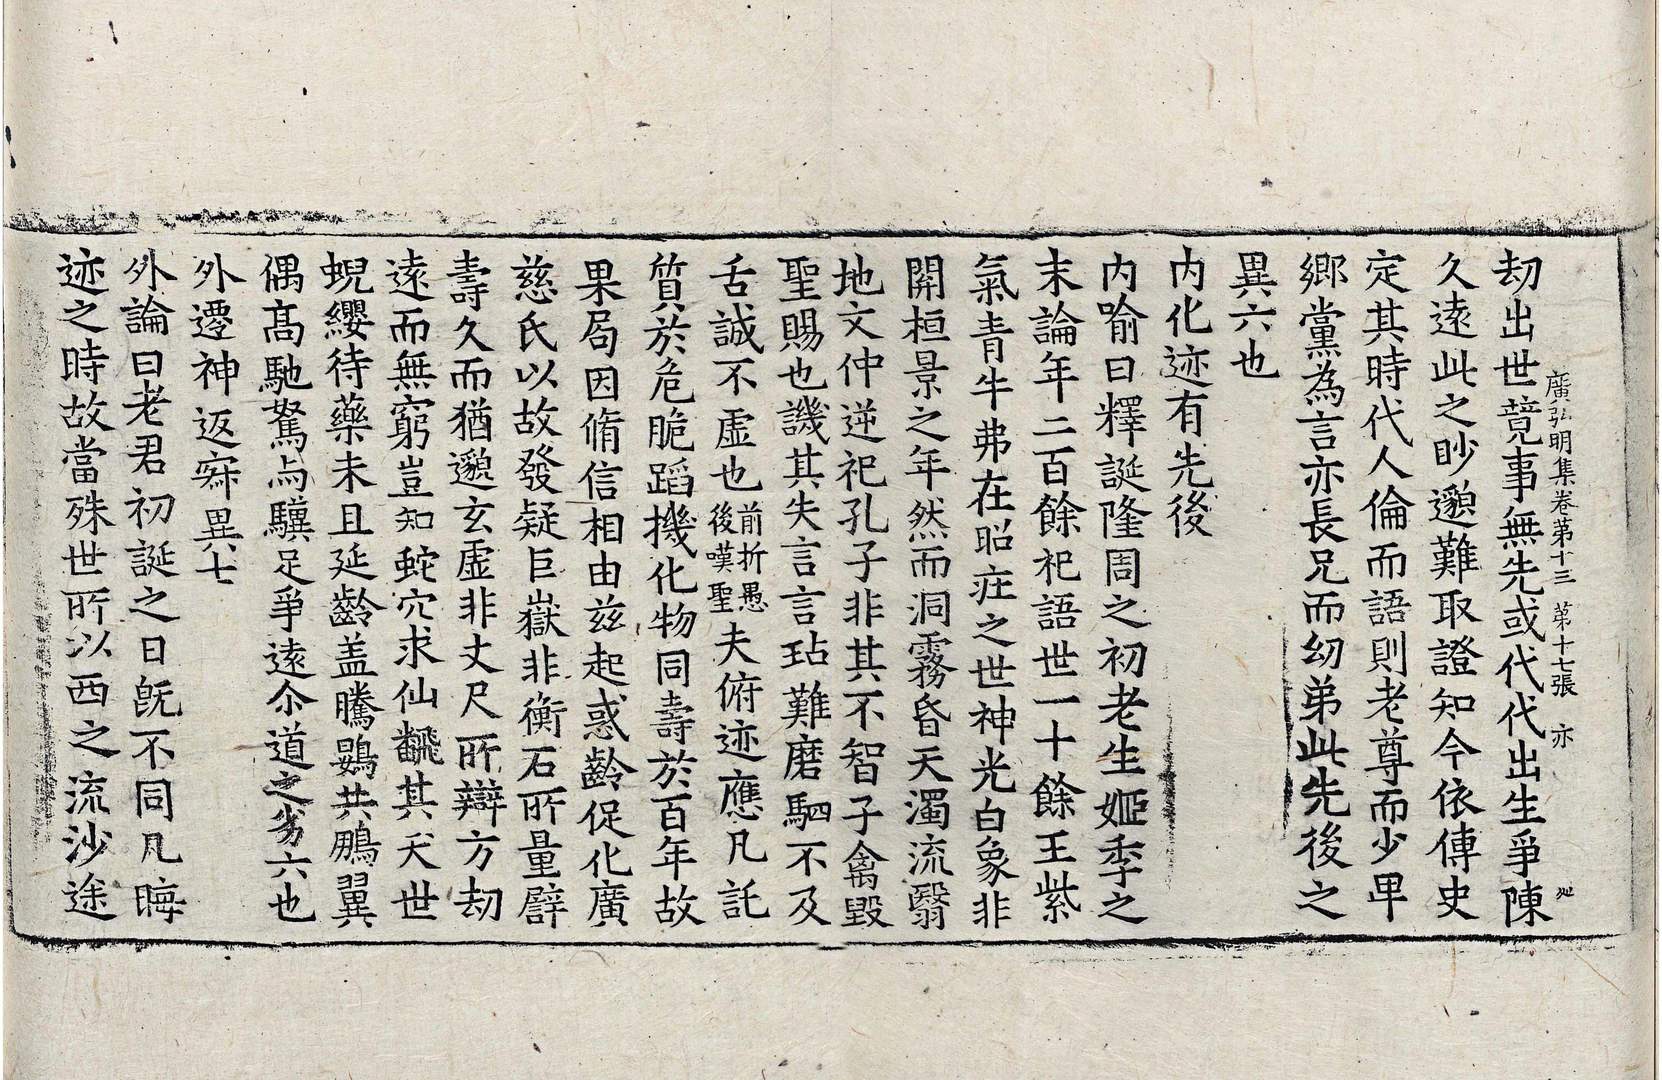 廣弘明集卷第十三 第十七張 亦
劫出世競事無先或代代出生爭陳
久遠此之眇邈難取證知今依傳史
定其時代人倫而語則老尊而少卑
鄉黨為言亦長兄而幼弟此先後之
異六也
內化迹有先後
內喻曰釋誕隆周之初老生姬季之
末論年二百餘祀語世一十餘王紫
氣青牛弗在昭莊之世神光白象非
開桓景之年然而洞霧昏天濁流翳
地文仲逆祀孔子非其不智子禽毀
聖賜也譏其失言言玷難磨駟不及
舌誠不虛也前折愚後嘆聖夫俯迹應凡託
質於危脆蹈機化物同壽於百年故
果局因脩信相由茲起惑齡促化廣
慈氏以故發疑巨嶽非衡石所量譬
壽久而猶邈玄虛非丈尺所辯方劫
遠而無窮豈知蛇穴求仙飜其夭世
蜺纓待藥未且延齡盖騰鷃共鵬翼
偶高馳駑与驥足爭遠尒道之劣六也
外遷神返寂異七
外論曰老君初誕之日旣不同凡晦
迹之時故當殊世所以西之流沙途